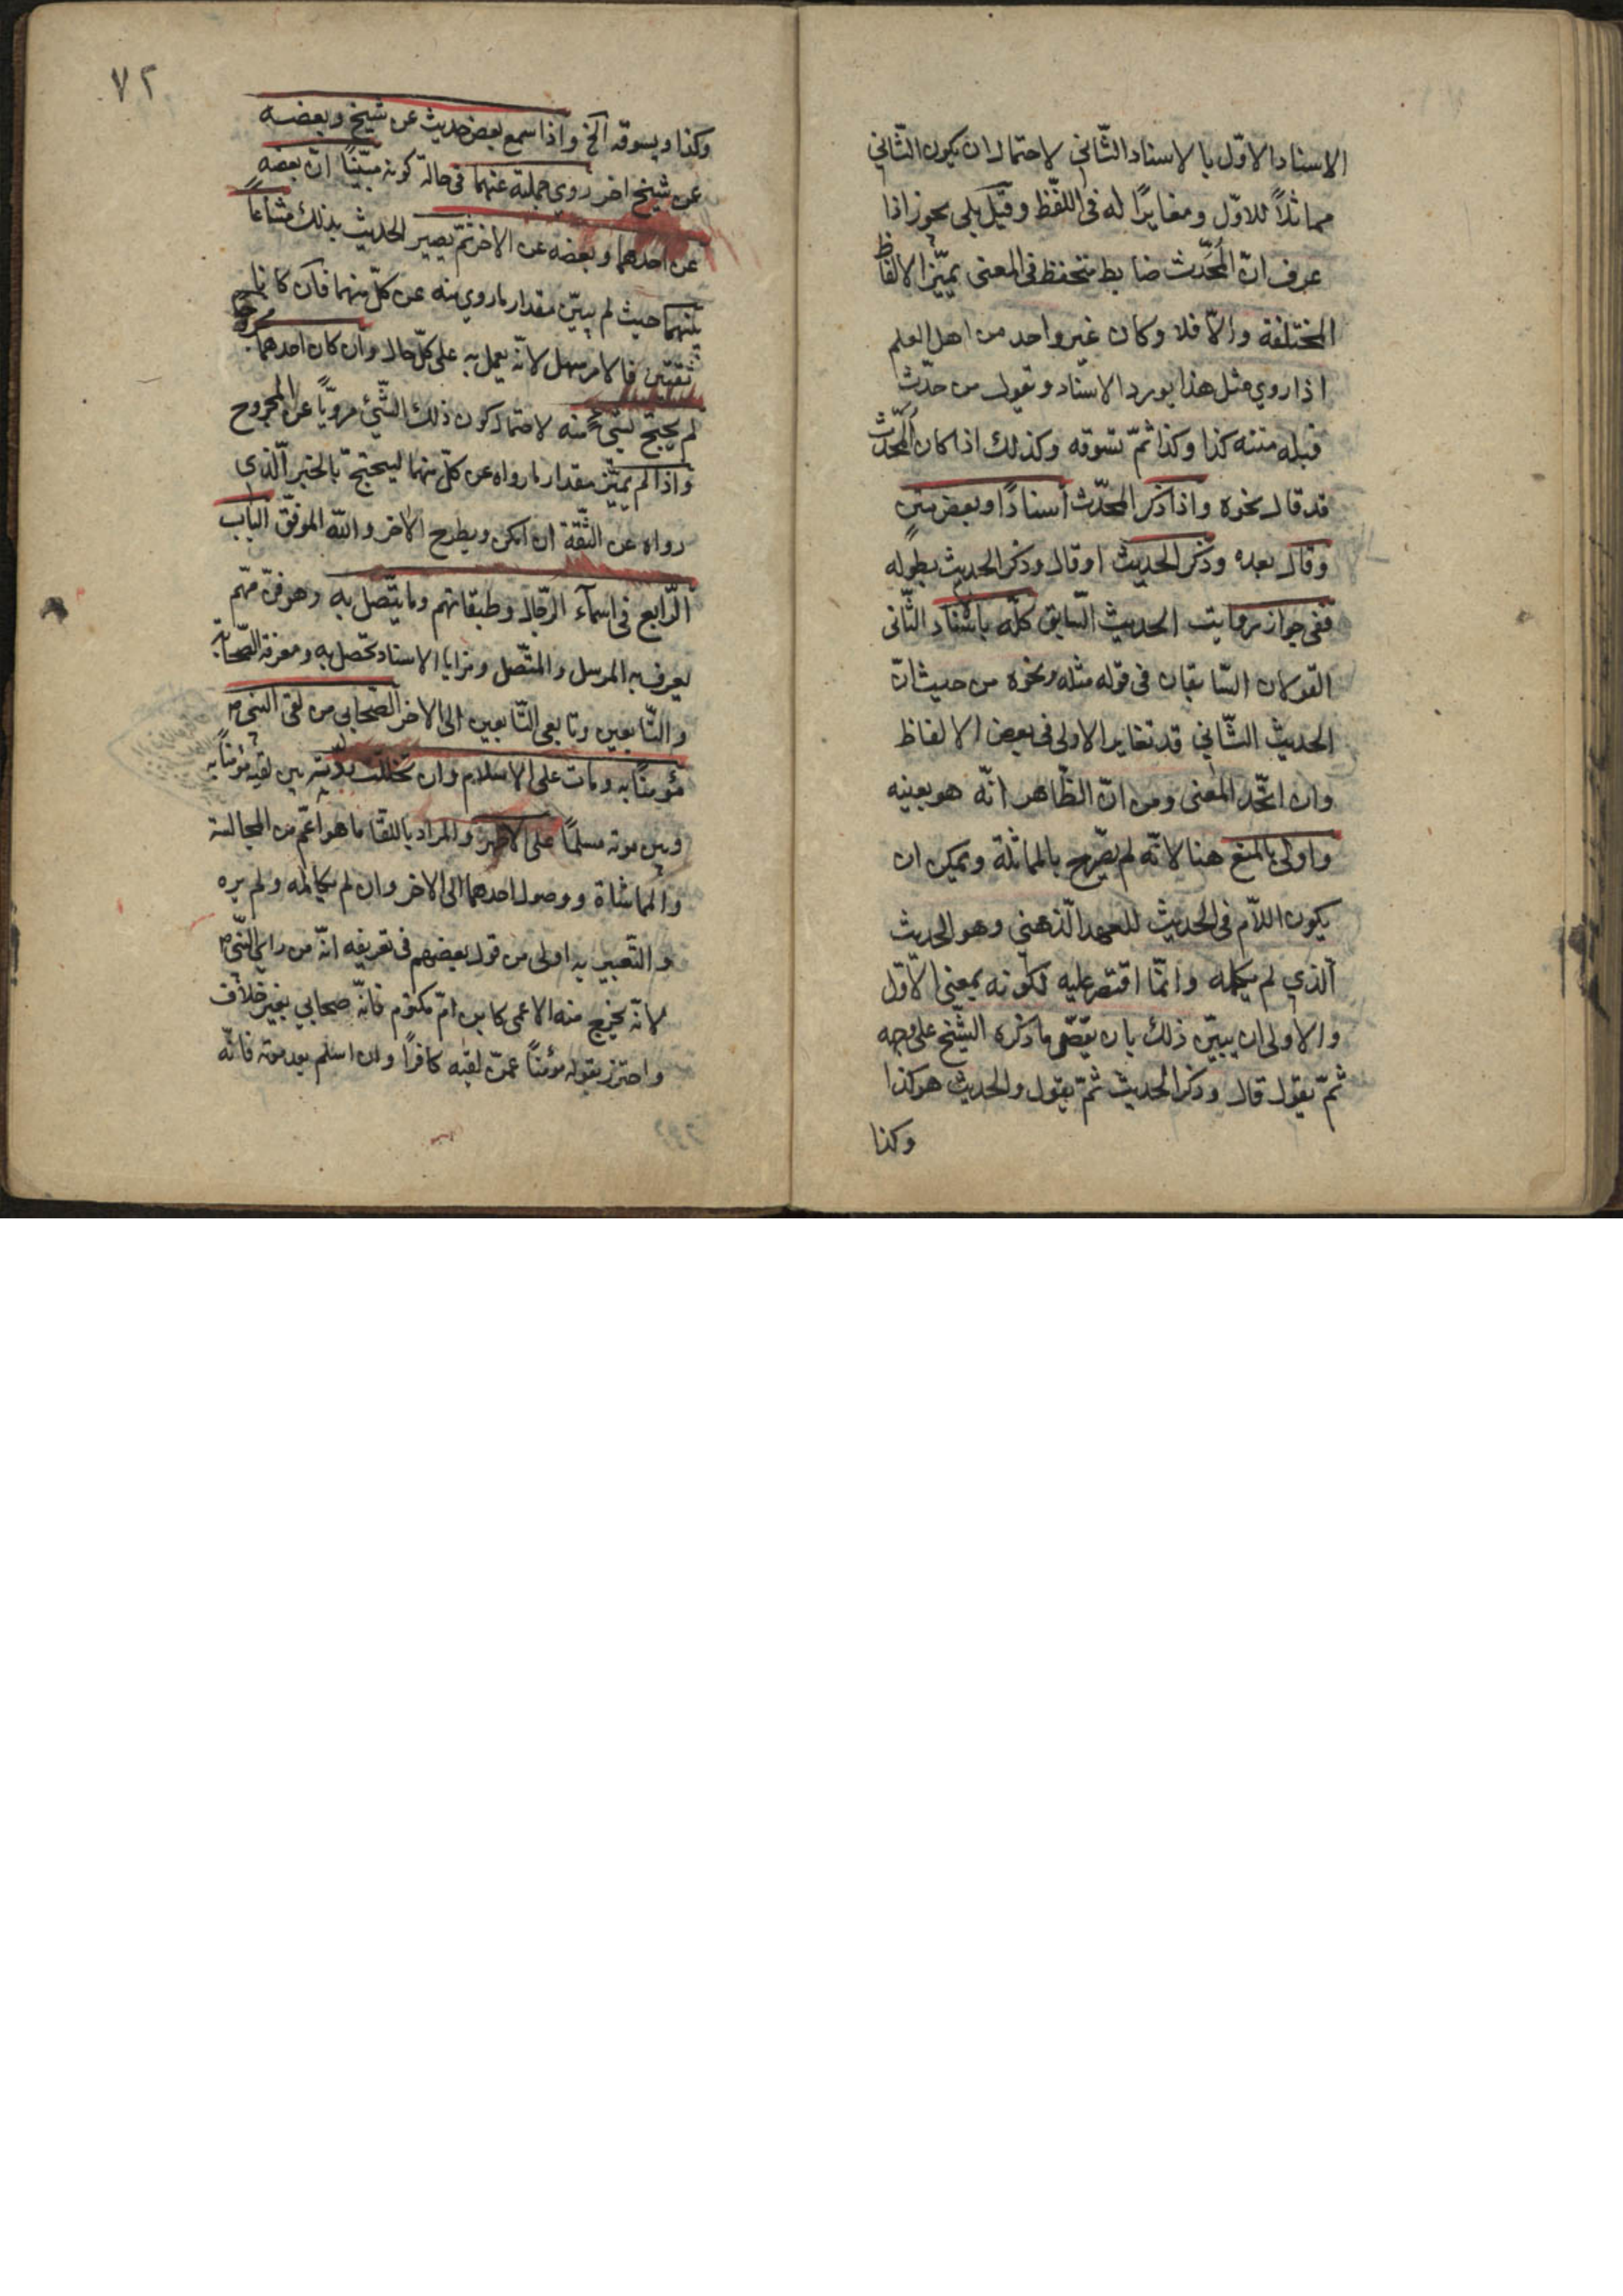 الاسناد الاوّل بالاسناد الثّاني لاحتمال ان يكون الثّاني
مماثلاً للاوّل ومغايرًا له فى اللّفظ وقيل بلى يجوز اذا
عرف انّ المحدّث ضابط متحفظ فى المعنى يميّز الالفاظ
المختلفة والاّ فلا وكان غير واحد من اهل العلم
اذا روي مثل هذا يورد الاسناد ويقول من حدّث
قبله متنه كذا وكذا ثمّ تسوقه وكذلك اذا كان المحدّث
قد قال نحوه واذا ذكر المحدّث اسنادًا وبعض متن
وقال بعده وذكر الحديث او قال وذكر الحديث بطوله
ففى جواز روايت الحديث السّابق كلّه باسناد الثّانى
القولان السّابقان فى قوله مثله ونحوه من حيث انّ
الحديث الثّاني قد تغاير الاولى فى بعض الالفاظ
وان اتّحد المعنى ومن انّ الظّاهر انّه هو بعينه
واولى بالمنع هنا لانّه لم يصّرح بالمماثلة ويمكن ان
يكون اللاّم فى الحديث للعهد الذّهني وهو الحديث
الّذي لم يكمله وانّما اقتصر عليه لكونه بمعنى الاّوّل
والاولى ان يبيّن ذلك بان يقصّ ما ذكره الشّيخ على وجهه
ثمّ يقول قال وذكر الحديث ثمّ يقول والحديث هو كذا
وكذا
٧٢
وكذا ويسوقه الخ واذا سمع بعض حديث عن شيخ وبعضه
عن شيخ اخر روي جملته عنهما فى حالة كونه مبيّنًا انّ بعضه
عن احدهما وبعضه عن الاخر ثمّ يصير الحديث بذلك مشاعاً
بينهما حيث لم يبيّن مقدار ما روي منه عن كلّ منهما فان كانا
ثقتين فالامر سهل لانّه يعمل به على كلّ حال وان كان احدهما مجروحًا
لم يحتج لشيء منه لاحتمال كون ذلك الشّئ مرويّاً عن المجروح
واذا لم يميّز مقدار ما رواه عن كلّ منهما ليحتجّ بالخبر الّذى
رواه عن الثّقة ان امكن ويطرح الاخر واللّه الموفّق الباب
الرّابع فى اسمآء الرّجال وطبقاتهم وما يتّصل به وهو فنّ مهّم
يعرف به المرسل والمتّصل ومزايا الاسناد تحصل به ومعرفة الصّحابة
والتّابعين وتابعى التّابعين الى الاخر الصّحابي من لقى النبىّ ص
مؤمنًا به ومات على الاسلام وان تخلّلت ردّته بين لقيه مؤمنًا به
وبين موته مسلمًا على الاظهر والمراد باللقا ما هو اعّم من المجالسة
والمماشاة ووصول احدهما الى الاخر وان لم يكالمه ولم يره
والتّعبير به اولى من قول بعضهم فى تعريفه انّه من راى النّبىّ ص
لانّه يخرج منه الاعمى كابن امّ مكتوم فانّه صحابي بغير خلاف
واحترز بقوله مؤمنًا عمّن لقيه كافرًا وان اسلم بعد موته فانّه